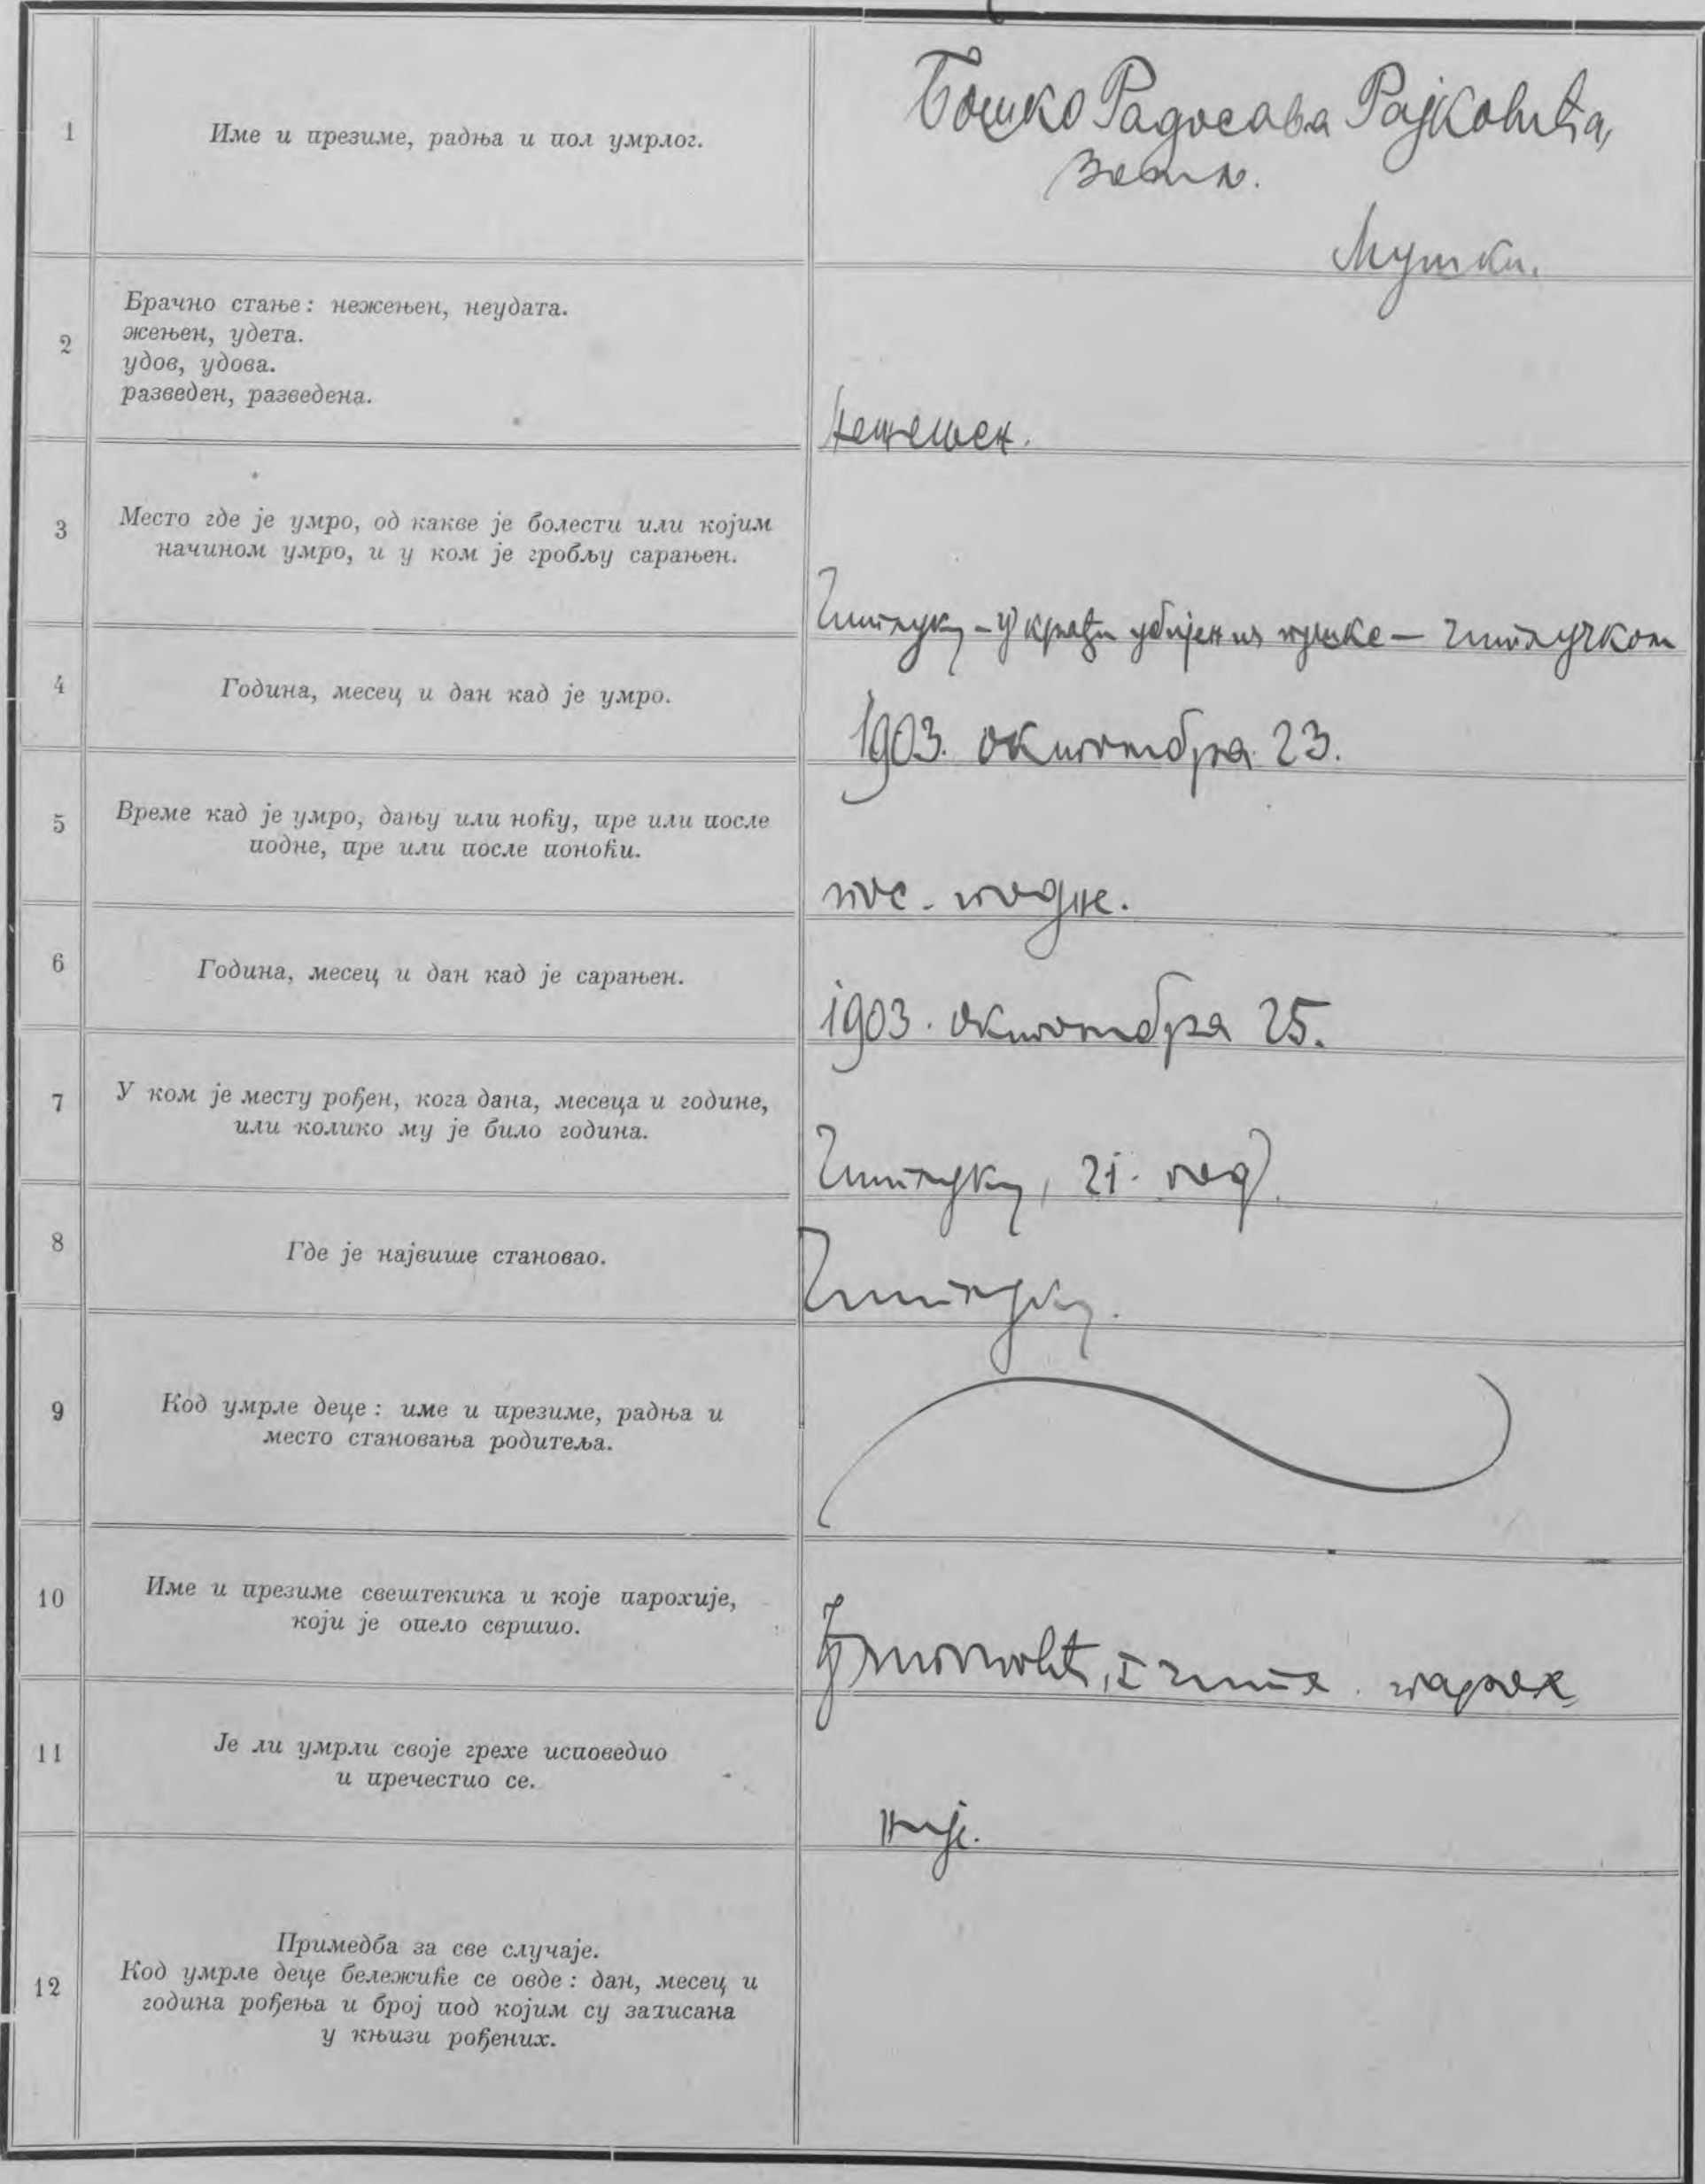 1
Име и презиме, радња и пол умрлог.
Бошко Радосава Рајковића,
земљ.
Мушки.
2
Брачно стање: нежењен, неудата.
жењен, удета.
удов, удова.
разведен, разведена.
Нежењен.
3
Место где је умро, од какве је болести или којим
начином умро, и у ком је гробљу сарањен.
Читлуку – у крађи убијен из пушке – читлучком
4
Година, месец и дан кад је умро.
1903. октомбра 23.
5
Време кад је умро, дању или ноћу, пре или после
подне, пре или после поноћи.
пос. подне.
6
Година, месец и дан кад је сарањен.
1903. октомбра 25.
7
У ком је месту рођен, кога дана, месеца и године,
или колико му је било година.
Читлуку, 21. год.
8
Где је највише становао.
Читлуку.
9
Код умрле деце: име и презиме, радња и
место становања родитеља.
10
Име и презиме свештекика и које парохије,
који је опело свршио.
I парох
11
Је ли умрли своје грехе исповедио
и пречестио се.
није.
12
Примедба за све случаје.
Код умрле деце бележиће се овде: дан, месец и
година рођења и број под којим су записана
у књизи рођених.